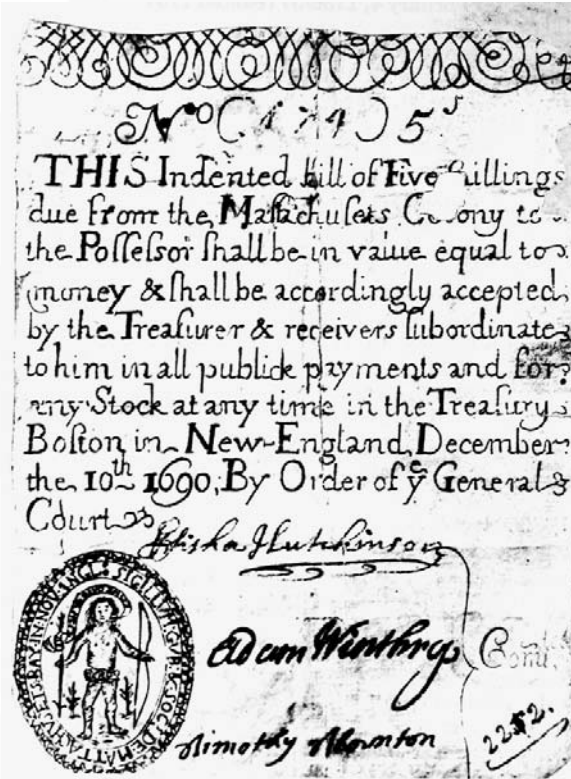 No (474) 5s
THIS Indented Bill of Five Shillings
due from the Maſſachuſets Colony to
the Poſſeſsor ſhall be in value equal to
money & ſhall be accordingly accepted
by the Treaſurer & receivers ſubordinate
to him in all publick payments and for
any Stock at any time in the Treaſury
Boſton in New-England, December
the 10th 1690, By Order of ye General
Court
Eliſha Hutchinson
Adam Winthrop
Timothy Thornton
Comtee
SIGILLUM GUB & SOC DE MATTAHUSETS BAY IN NOV ANGL